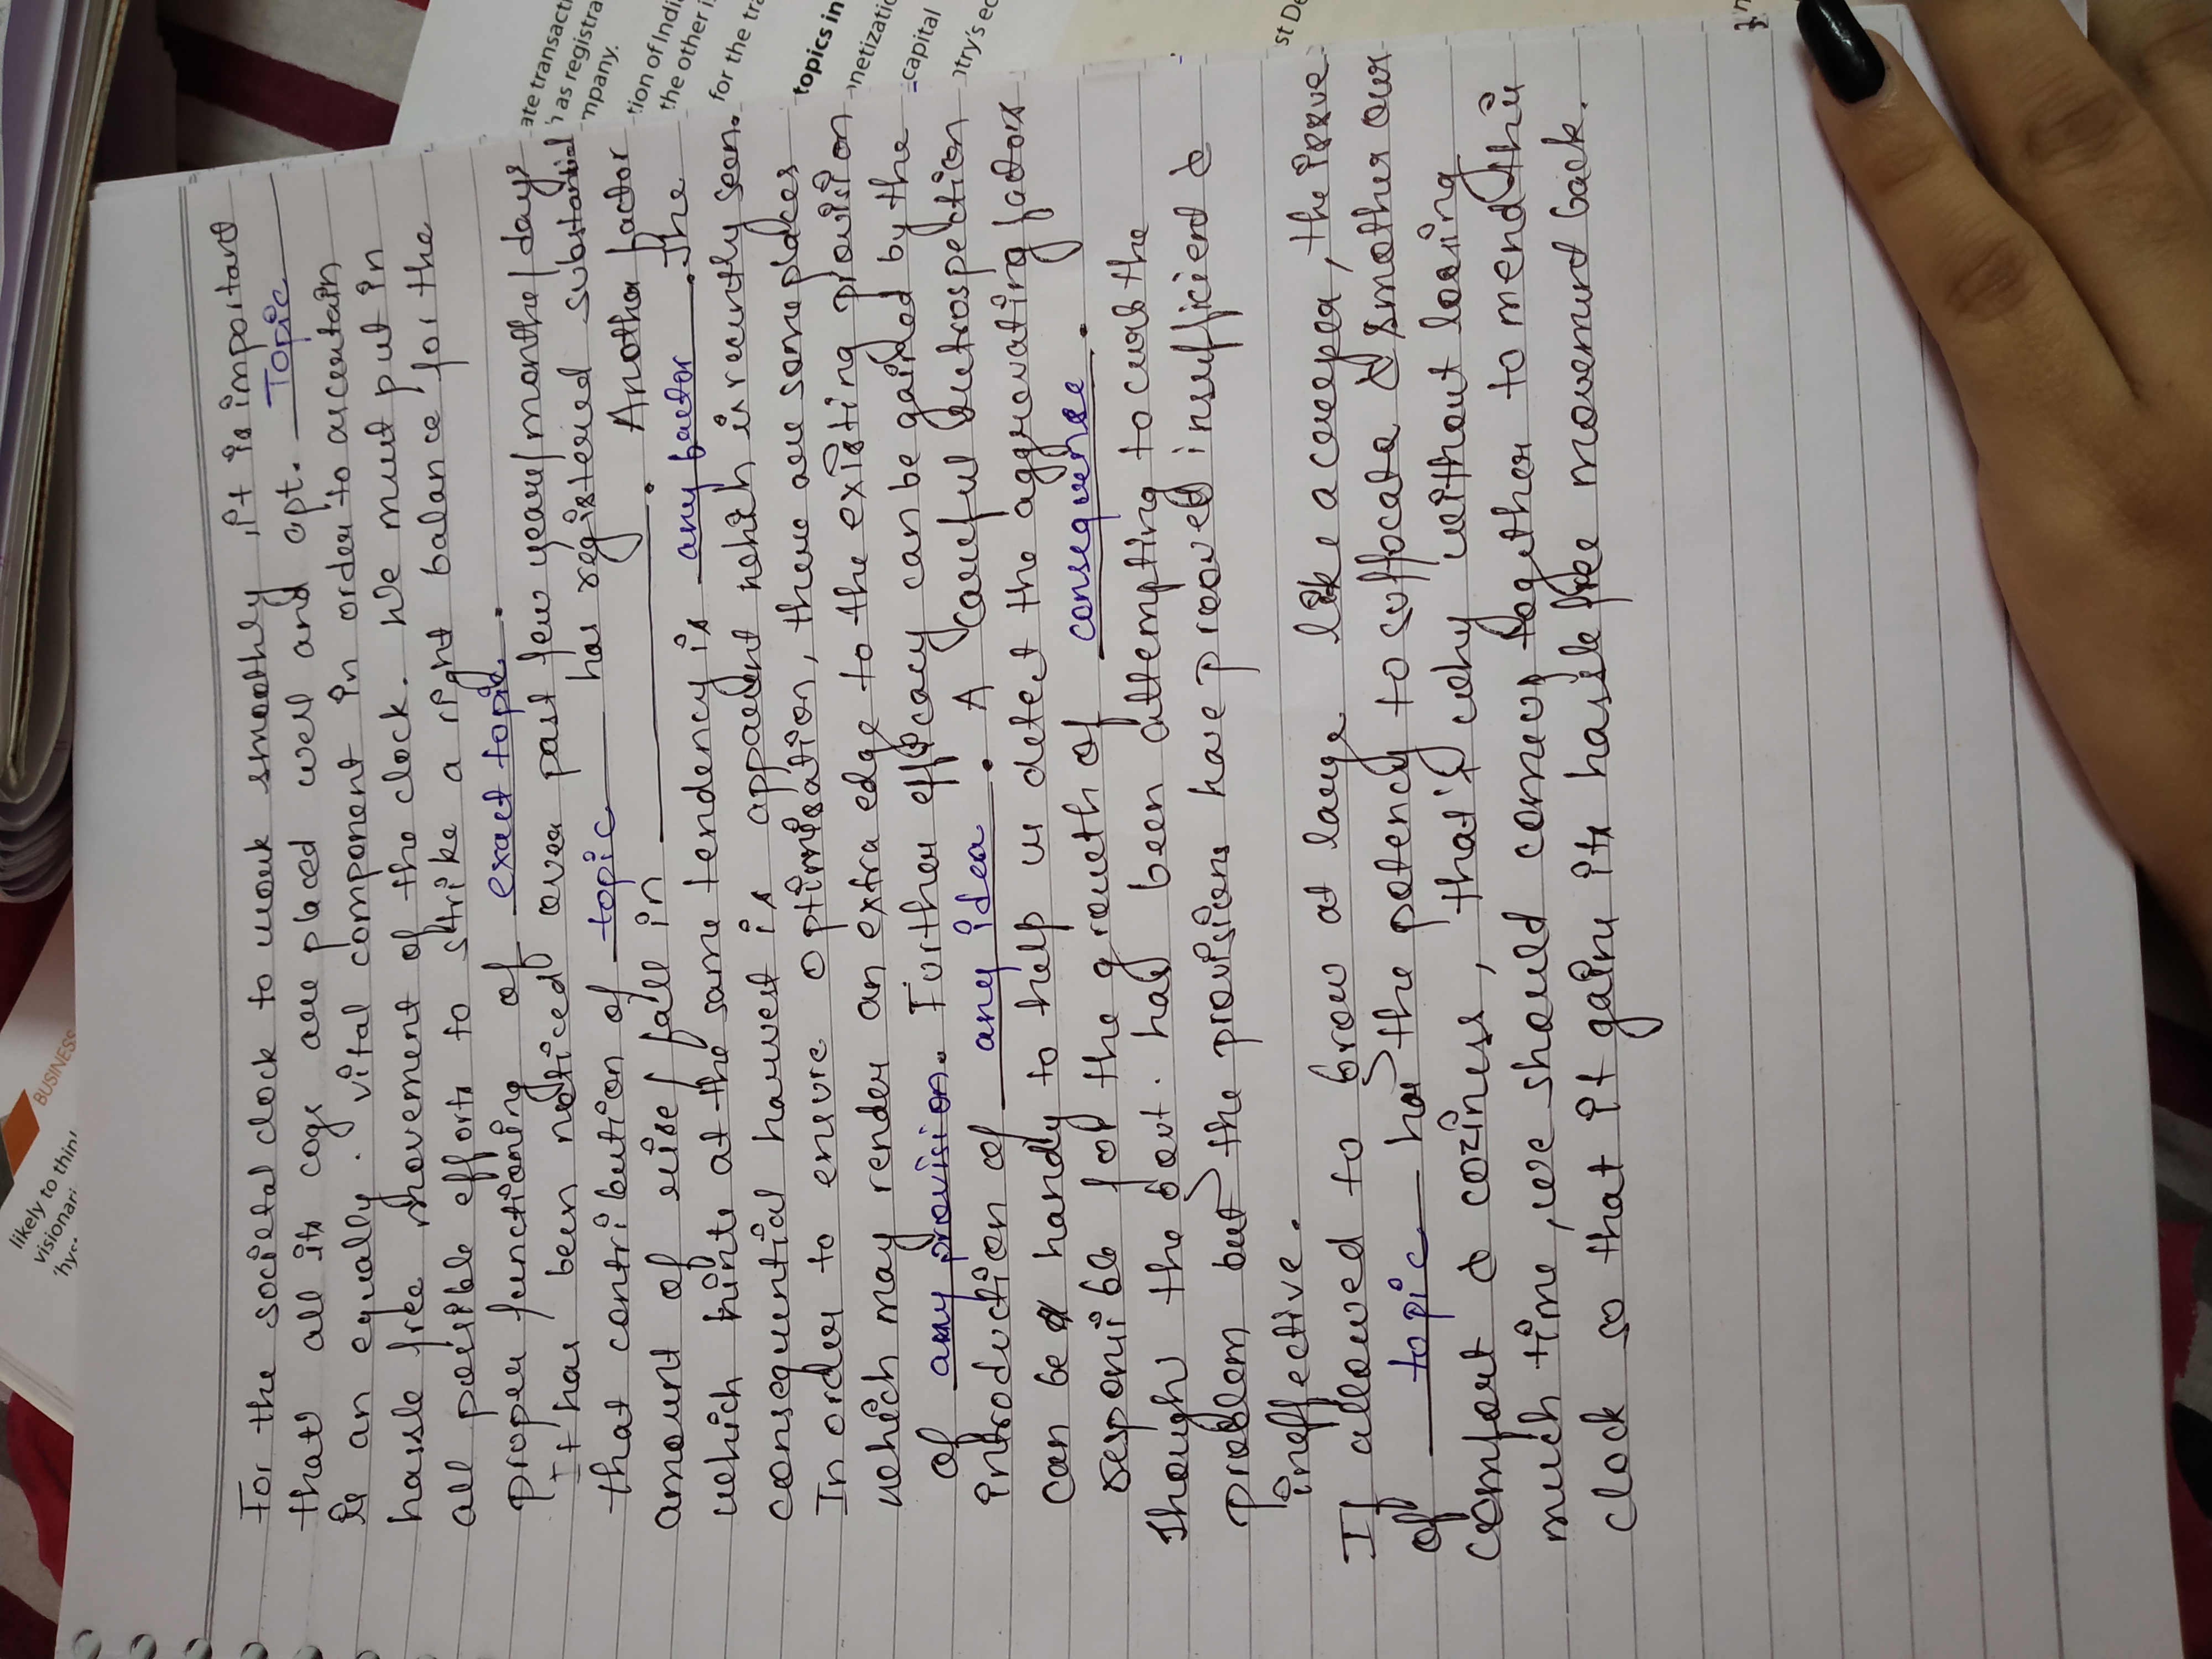 For the societal clock to work smoothly, it is important
that all its cogs are placed well and apt. Topic
is an equally. vital component in order to ascertain
hassle free movement of the clock. We must put in
all possible efforts to strike a right balance for the
proper functioning of exact topic.
It has been noticed over past few years/months/days
that contribution of topic has registered substantial
amount of rise/fall in ______. Another factor
which hints at the same tendency is any factor. The
consequential harvest is apparent which is recently seen.
In order to ensure optimisation, there are some places
which may render an extra edge to the existing provision
of any provision. Further efficacy can be gained by the
introduction of any idea. A careful introspection
can be handy to help us detect the aggrovating factors
responsible for the growth of consequence.
Though the Govt. has been attempting to curb the
problem but the provisions have proved insufficient &
ineffective.
If allowed to grow at large like a creeper, the issue
of topic has the potency to suffocate & smother our
comfort & coziness, that's why without losing
much time, we should convey together to mend this
clock so that it gains its hassle free movement back.
ate transacti
as registra
mpany.
tion of Indi
the other i
for the tra
topics in
netizatio
capital
try's ec
st De
BUSINESS
likely to thin
visionari
'hys